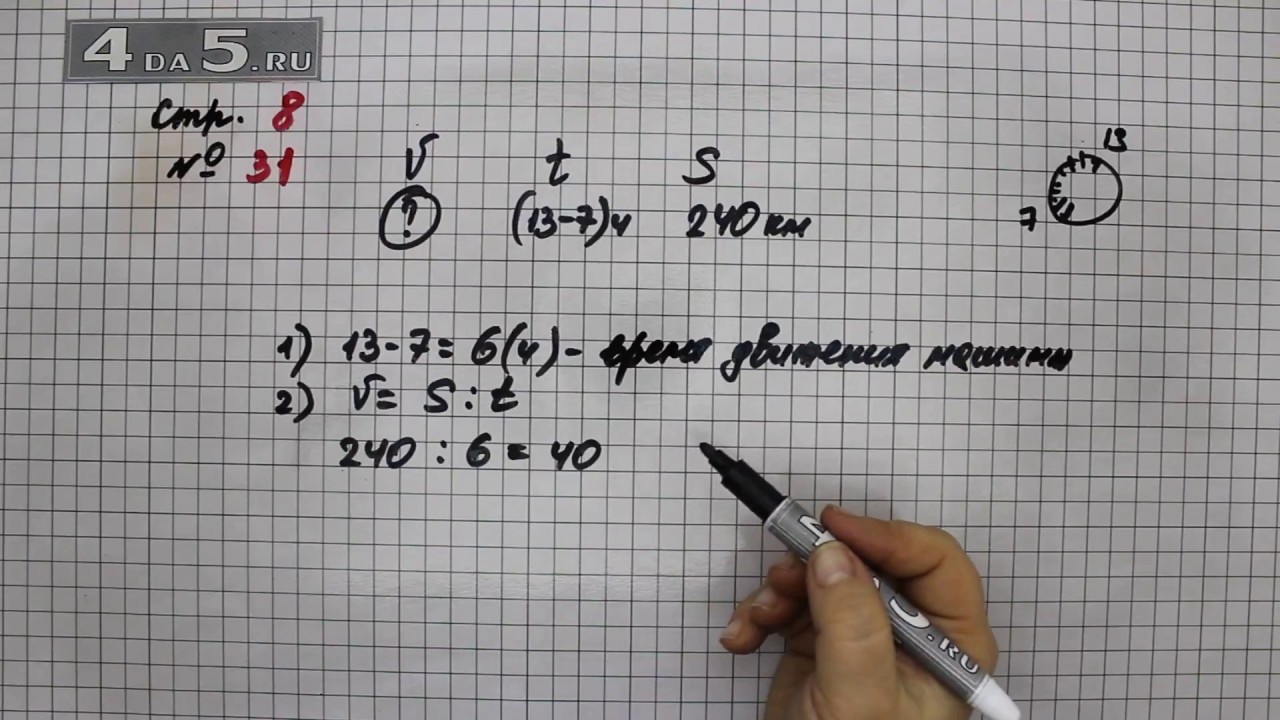 4 DA 5.RU
Стр. 8
№ 31
V t S
? (13-7)ч 240 км
13
7
1) 13-7=6(ч)- время движения машины
2) V= S : t
240 : 6 = 40
5.RU